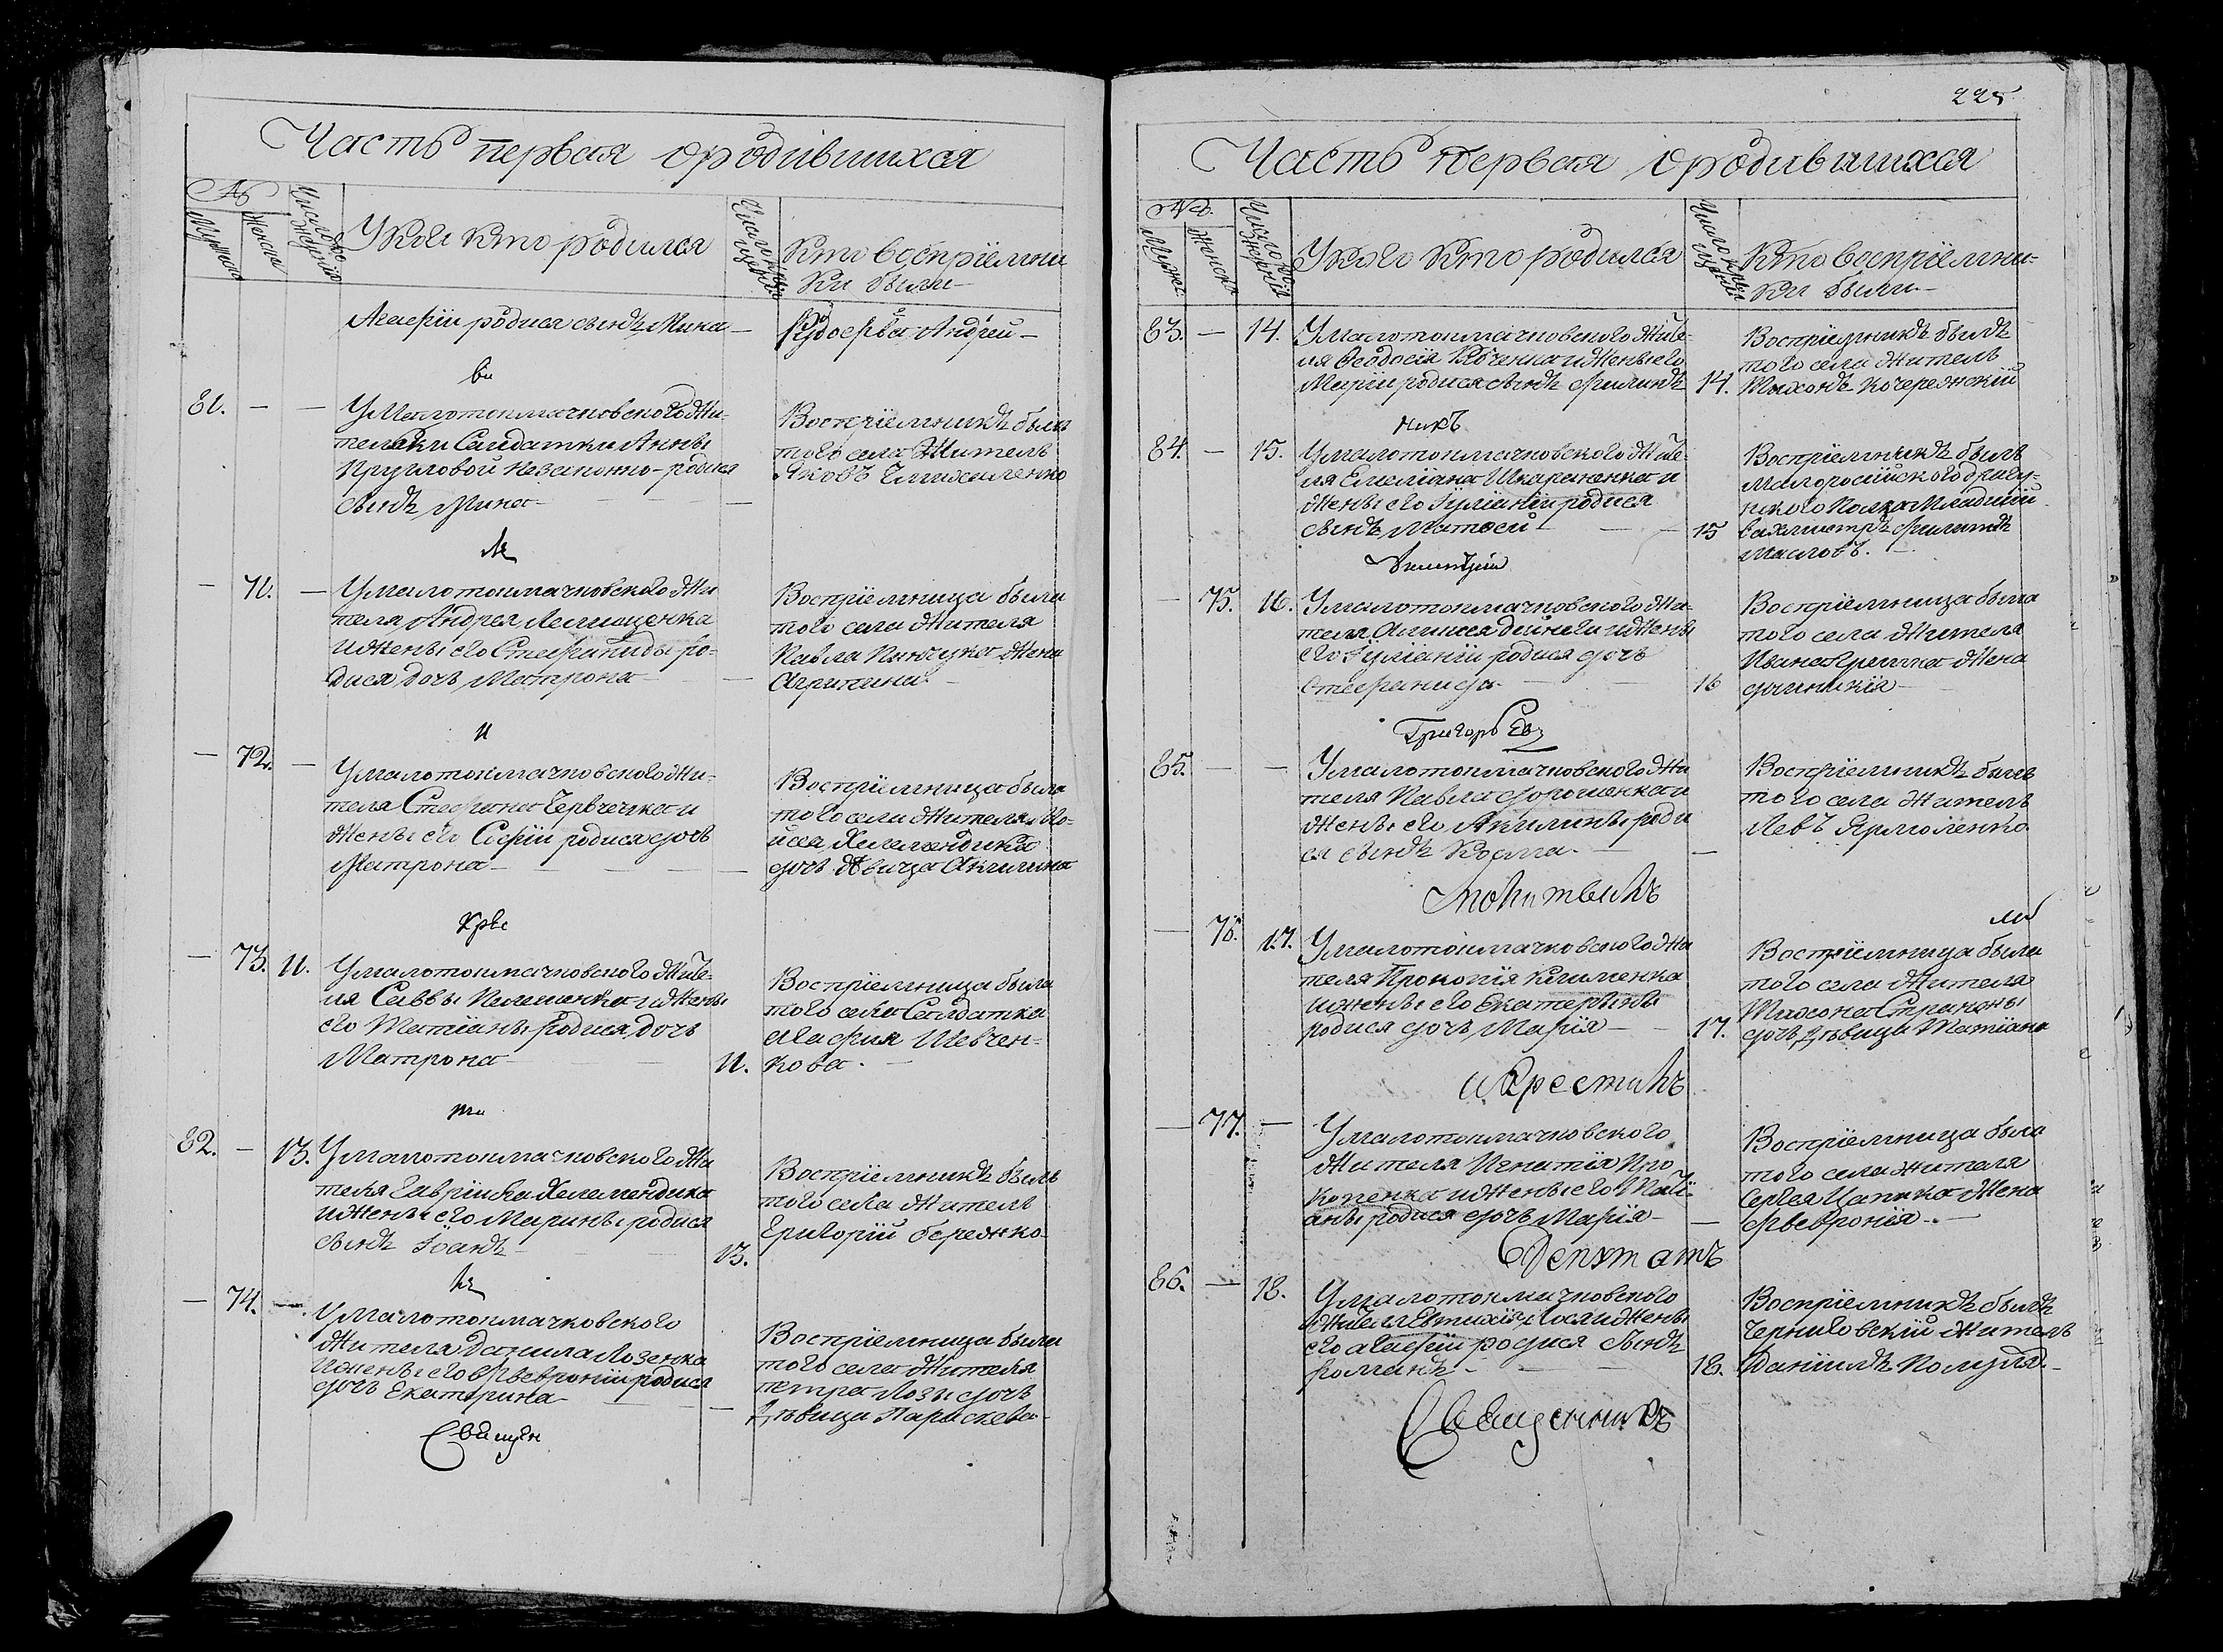 Часть первая о родившихся
№
Мужеска
Женска
Число рождения
У кого кто родился
Число крещения
Кто восприемни
ки были
Агафiи родися сынъ Мина —
Андрей —
ви
81. — —
У Малотокмачковского жи-
тельки Салдатки Анны
Кругловой незаконно-родися
сынъ Мина — —
Восприемникъ былъ
того села житель
Яковъ
— 71. —
У малотокмачковского жи
теля Андрея Лемещенка
и жены его Стефаниды ро-
дися дочь Матрона — —
Восприемница была
того села жителя
Павла жена
Агрипина —
и
— 72. —
У малотокмачковского жи-
теля Стефана Червеченка и
жены его Софiи родися дочь
Матрона — —
Восприемница была
того села жителя Мо-
исея Хелемендика
дочь девица Акилина
Крес
— 73. 11.
У малотокмачковского жите-
ля Саввы Пелешенка и жены
его Татiаны родися дочь
Матрона — 11.
Восприемница была
того села Салдатка
Агафия Шевчен-
кова. —
ти
82. — 13.
У малотокмачковского жи
теля Гаврiила Хелемендика
и жены его Марины родися
сынъ Iоанъ — 13.
Восприемникъ былъ
того села житель
Григорiй бережко-
лъ
— 74. —
У малотокмачковского
жителя Данила Лозенка
и жены его Февронiи родися
дочь Екатерина — —
Восприемница была
того села жителя
петра Лозы дочь
девица Параскева —
Священ
225
Часть первая о родившихся
№
Мужес
Женска
Число рождения
У кого кто родился
Число крещения
Кто восприемни-
ки были —
83. — 14.
У малотокмачковского жите-
ля Феодосiя Коченка и жены его
Марiи родися сынъ Филипъ 14.
Восприемникъ былъ
того села житель
Тихонъ Кочережскiй
никъ
84. — 15.
У малотокмачковского жите-
ля Емелiана Шкарапенка и
жены его Iулiанiи родися
сынъ Матфей — 15
Восприемникъ былъ
малороссiйского драгу-
нского Полка Младшiй
вахмистръ Филипъ
Масловъ. —
— 75. 16.
У малотокмачковского жи-
теля Алексея дейнеги и жены
его Iулiанiи родися дочь
Стефанида — 16
Восприемница была
того села жителя
Ивана жена
дочиникiя —
Григорьевъ
85. — —
У малотокмачковского жи
теля Павла Дорошенка и
жены его Акилины роди
ся сынъ Косма — —
Восприемникъ былъ
того села житель
Левъ Ярмоленко.
Молитвилъ
— 76. 17.
У малотокмачковского жи
теля Прокопiя Клименка
и жены его Екатерины
родися дочь Марiя — 17.
Восприемница была
того села жителя
Тихона Страноны
дочь девица Татiана
и Крестилъ
— 77. —
У малотокмачковского
жителя Игнатiя Про
копенка и жены его Татi-
аны родися дочь Марiя — —
Восприемница была
того села жителя
Сергея Цапика жена
Февронiя —
Депутатъ
86. — 18.
У малотокмачковского
жителя Евтихiя Гоги и жены
его Агафiи родися сынъ
Романъ — 18.
Восприемникъ былъ
Черниговскiй житель
Данiилъ Полуля. —
Священникъ